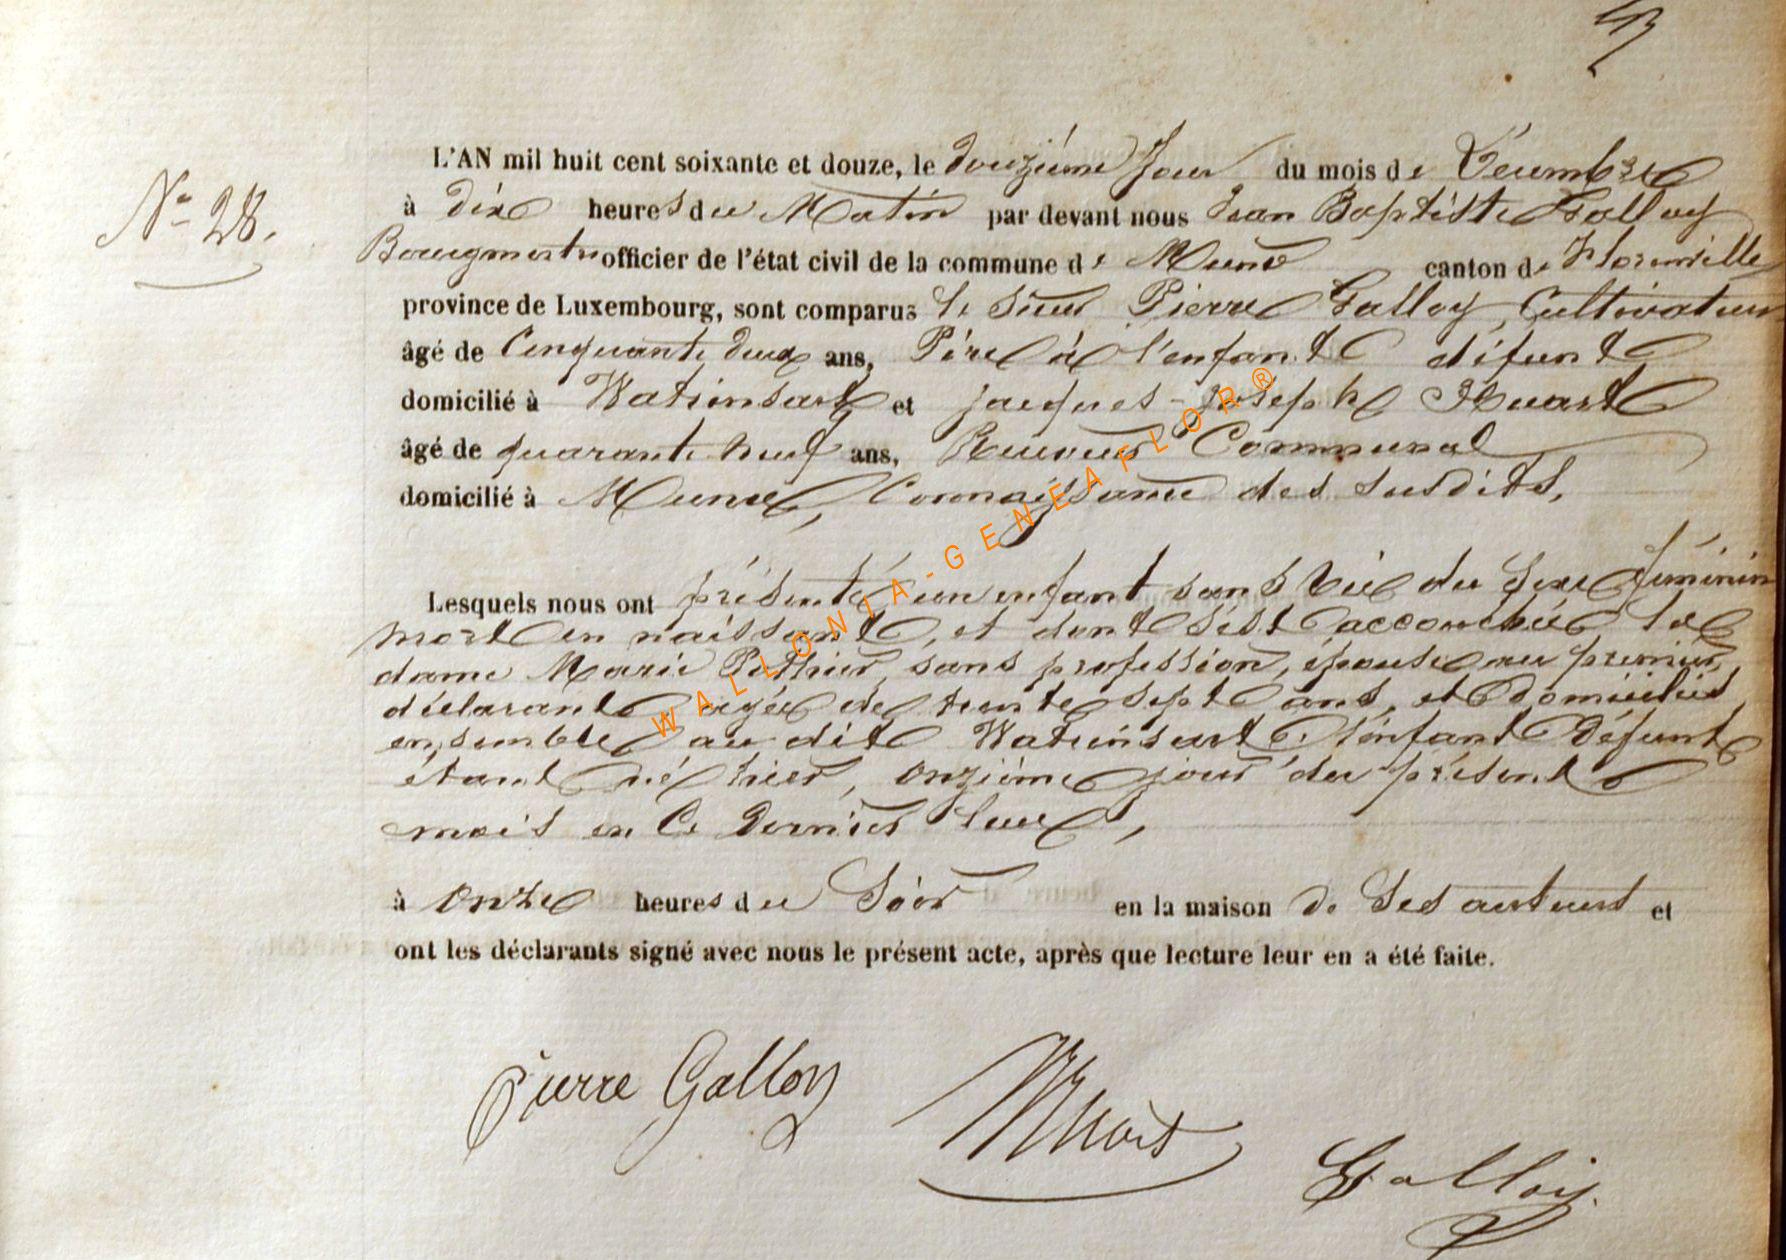 N° 28.
L'AN mil huit cent soixante et douze, le douzième jour du mois de Décembre
à dix heures du Matin par devant nous Jean Baptiste Galloy
Bourgmestre officier de l'état civil de la commune de Muno canton de Florenville
province de Luxembourg, sont comparus le sieur Pierre Galloy, Cultivateur
âgé de Cinquante deux ans, Père à l'enfant défunt
domicilié à Watrinsart et Jacques-Joseph Huart
âgé de quarante neuf ans, Receveur Communal
domicilié à Muno, Connaissance des susdits,
Lesquels nous ont présenté un enfant sans vie du sexe féminin
mort en naissant, et dont s'est accouchée la
dame Marie Pethier, sans profession, épouse au premier
déclarant, agée de trente sept ans, et domiciliés
ensemble au dit Watrinsart, l'enfant défunt
étant né hier, onzième jour du présent
mois en ce dernier lieu,
à onze heures du Soir en la maison de ses auteurs et
ont les déclarants signé avec nous le présent acte, après que lecture leur en a été faite.
Pierre Galloy
Galloy
WALLONIA-GENEAFLOR®